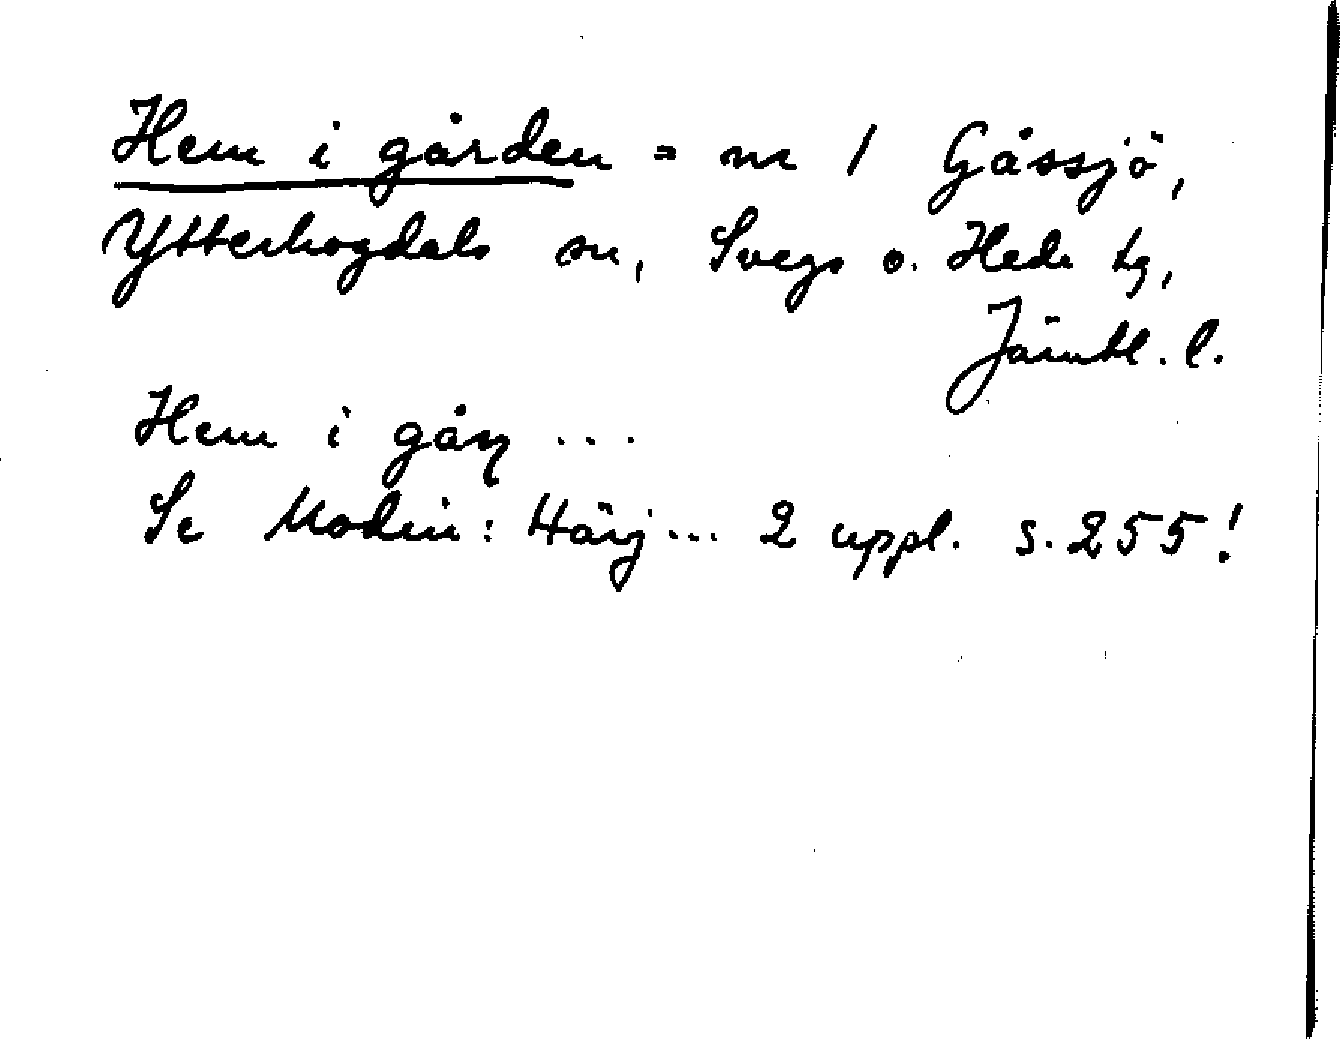 Hem i gården = nr 1 Gåssjö,
Ytterhogdals sn, Svegs o. Hede tg,
Jämtl. l.
Hem i gåṇ ...
Se Modin: Härj... 2 uppl. s. 255!